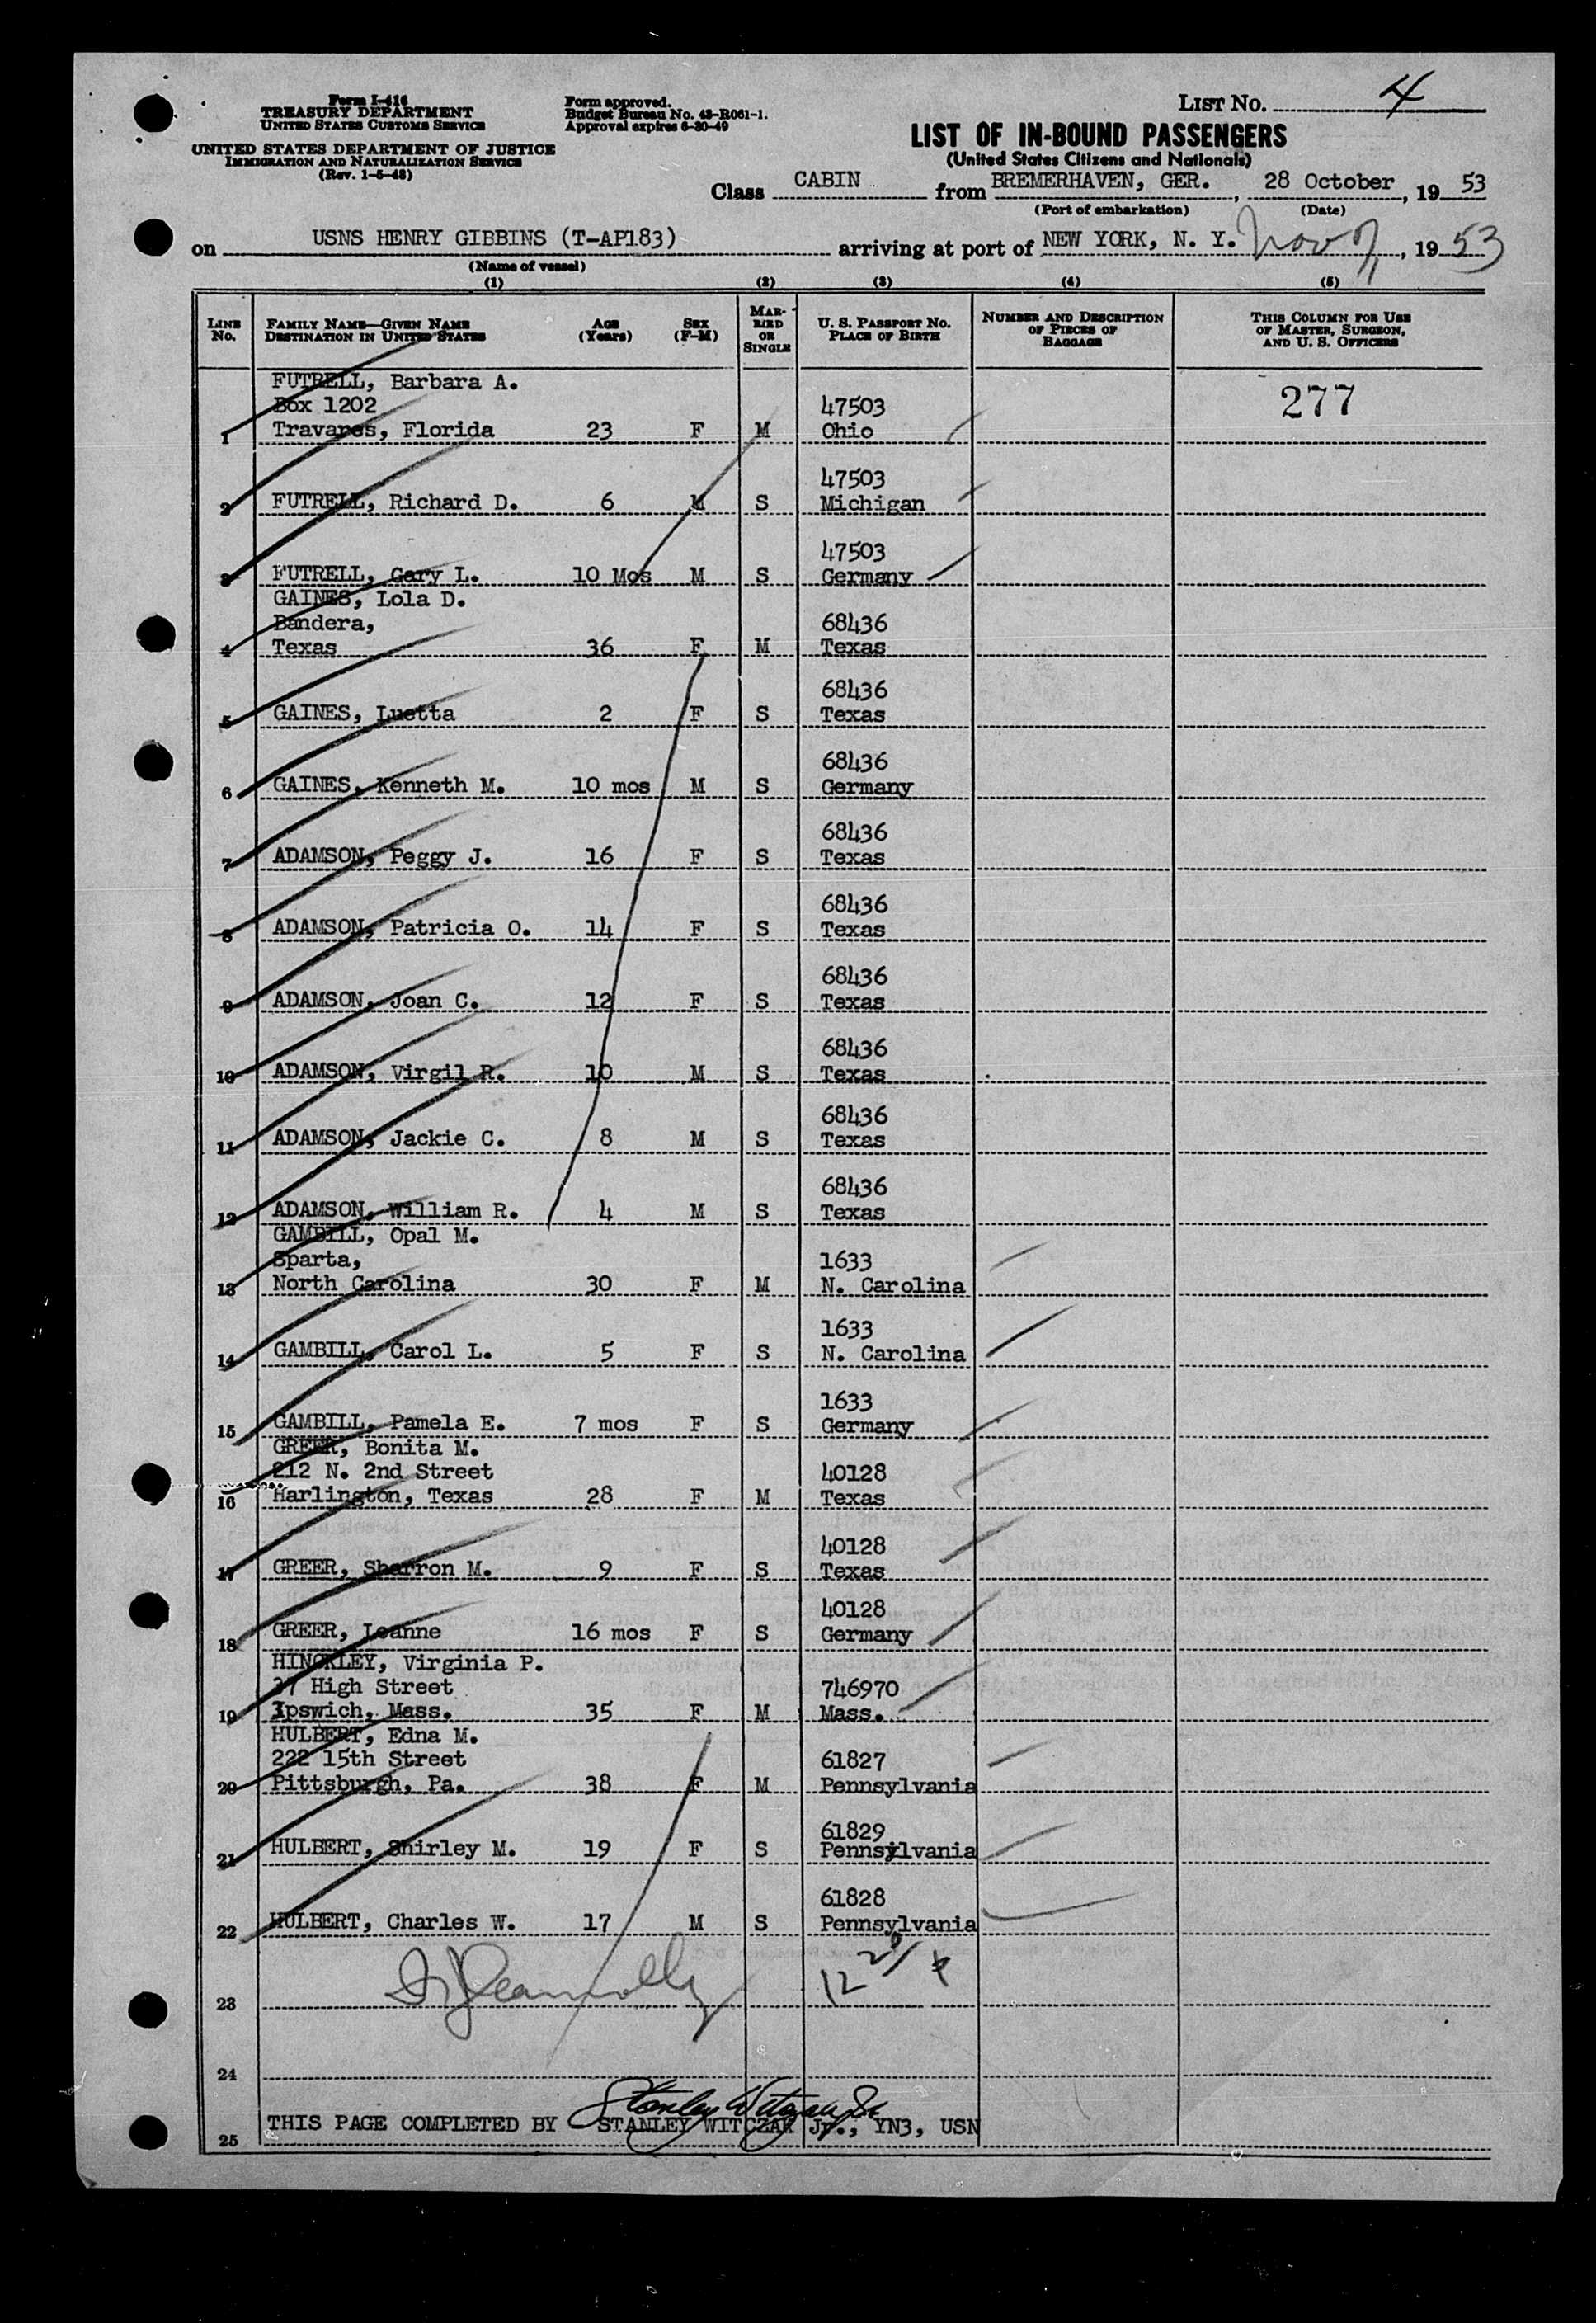 Form I-416
TREASURY DEPARTMENT
UNITED STATES CUSTOMS SERVICE
UNITED STATES DEPARTMENT OF JUSTICE
IMMIGRATION AND NATURALIZATION SERVICE
(Rev. 1-5-48)
Form approved.
Budget Bureau No. 43-R061-1.
Approval expires 6-30-49
LIST No. 4
LIST OF IN-BOUND PASSENGERS
(United States Citizens and Nationals)
Class CABIN from BREMERHAVEN, GER., 28 October, 19 53
(Port of embarkation) (Date)
on USNS HENRY GIBBINS (T-AP183) arriving at port of NEW YORK, N. Y. Nov 7, 19 53
(Name of vessel)
(1) (2) (3) (4) (5)
LINE No. FAMILY NAME—GIVEN NAME DESTINATION IN UNITED STATES AGE (Years) SEX (F-M) MARRIED OR SINGLE U. S. PASSPORT No. PLACE OF BIRTH NUMBER AND DESCRIPTION OF PIECES OF BAGGAGE THIS COLUMN FOR USE OF MASTER, SURGEON, AND U. S. OFFICERS
277
FUTRELL, Barbara A.
Box 1202 47503
1 Travares, Florida 23 F M Ohio
47503
2 FUTRELL, Richard D. 6 M S Michigan
47503
3 FUTRELL, Gary L. 10 Mos M S Germany
GAINES, Lola D.
Bandera, 68436
4 Texas 36 F M Texas
68436
5 GAINES, Luetta 2 F S Texas
68436
6 GAINES, Kenneth M. 10 mos M S Germany
68436
7 ADAMSON, Peggy J. 16 F S Texas
68436
8 ADAMSON, Patricia O. 14 F S Texas
68436
9 ADAMSON, Joan C. 12 F S Texas
68436
10 ADAMSON, Virgil R. 10 M S Texas
68436
11 ADAMSON, Jackie C. 8 M S Texas
68436
12 ADAMSON, William R. 4 M S Texas
GAMBILL, Opal M.
Sparta, 1633
13 North Carolina 30 F M N. Carolina
1633
14 GAMBILL, Carol L. 5 F S N. Carolina
1633
15 GAMBILL, Pamela E. 7 mos F S Germany
GREER, Bonita M.
212 N. 2nd Street 40128
16 Harlington, Texas 28 F M Texas
40128
17 GREER, Sharron M. 9 F S Texas
40128
18 GREER, Leanne 16 mos F S Germany
HINCKLEY, Virginia P.
37 High Street 746970
19 Ipswich, Mass. 35 F M Mass.
HULBERT, Edna M.
222 15th Street 61827
20 Pittsburgh, Pa. 38 F M Pennsylvania
61829
21 HULBERT, Shirley M. 19 F S Pennsylvania
61828
22 HULBERT, Charles W. 17 M S Pennsylvania
23
24
Stanley Witczak Jr
25 THIS PAGE COMPLETED BY STANLEY WITCZAK Jr., YN3, USN